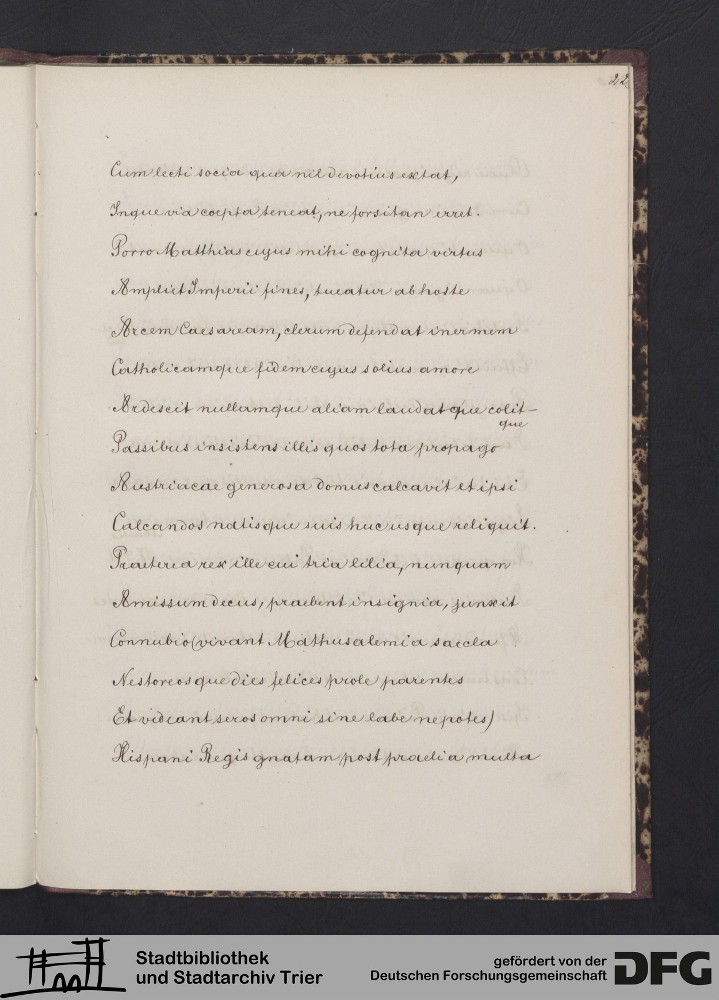 22
Cum lecti socia qua nil devotius extat,
Inque via coepta teneat, ne forsitan erret.
Porro Matthias cuyus mihi cognita virtus
Ampliet Imperii fines, tueatur ab hoste
Arcem Caesaream, clerum defendat inermem
Catholicamque fidem cuyus solius amore
Ardescit nullamque aliam laudat que colit-
que
Passibus insistens illis quos tota propago
Austriacae generosa domus calcavit et ipsi
Calcandos natisque suis huc usque reliquit.
Praeterea rex ille cui tria lilia, nunquam
Amissum decus, praebent insignia, junxit
Connubio (vivant Mathusalemia saecla
Nestoreosque dies felices prole parentes
Et videant seros omni sine labe nepotes)
Hispani Regis gnatam post praelia multa
Stadtbibliothek
und Stadtarchiv Trier
gefördert von der
Deutschen Forschungsgemeinschaft
DFG